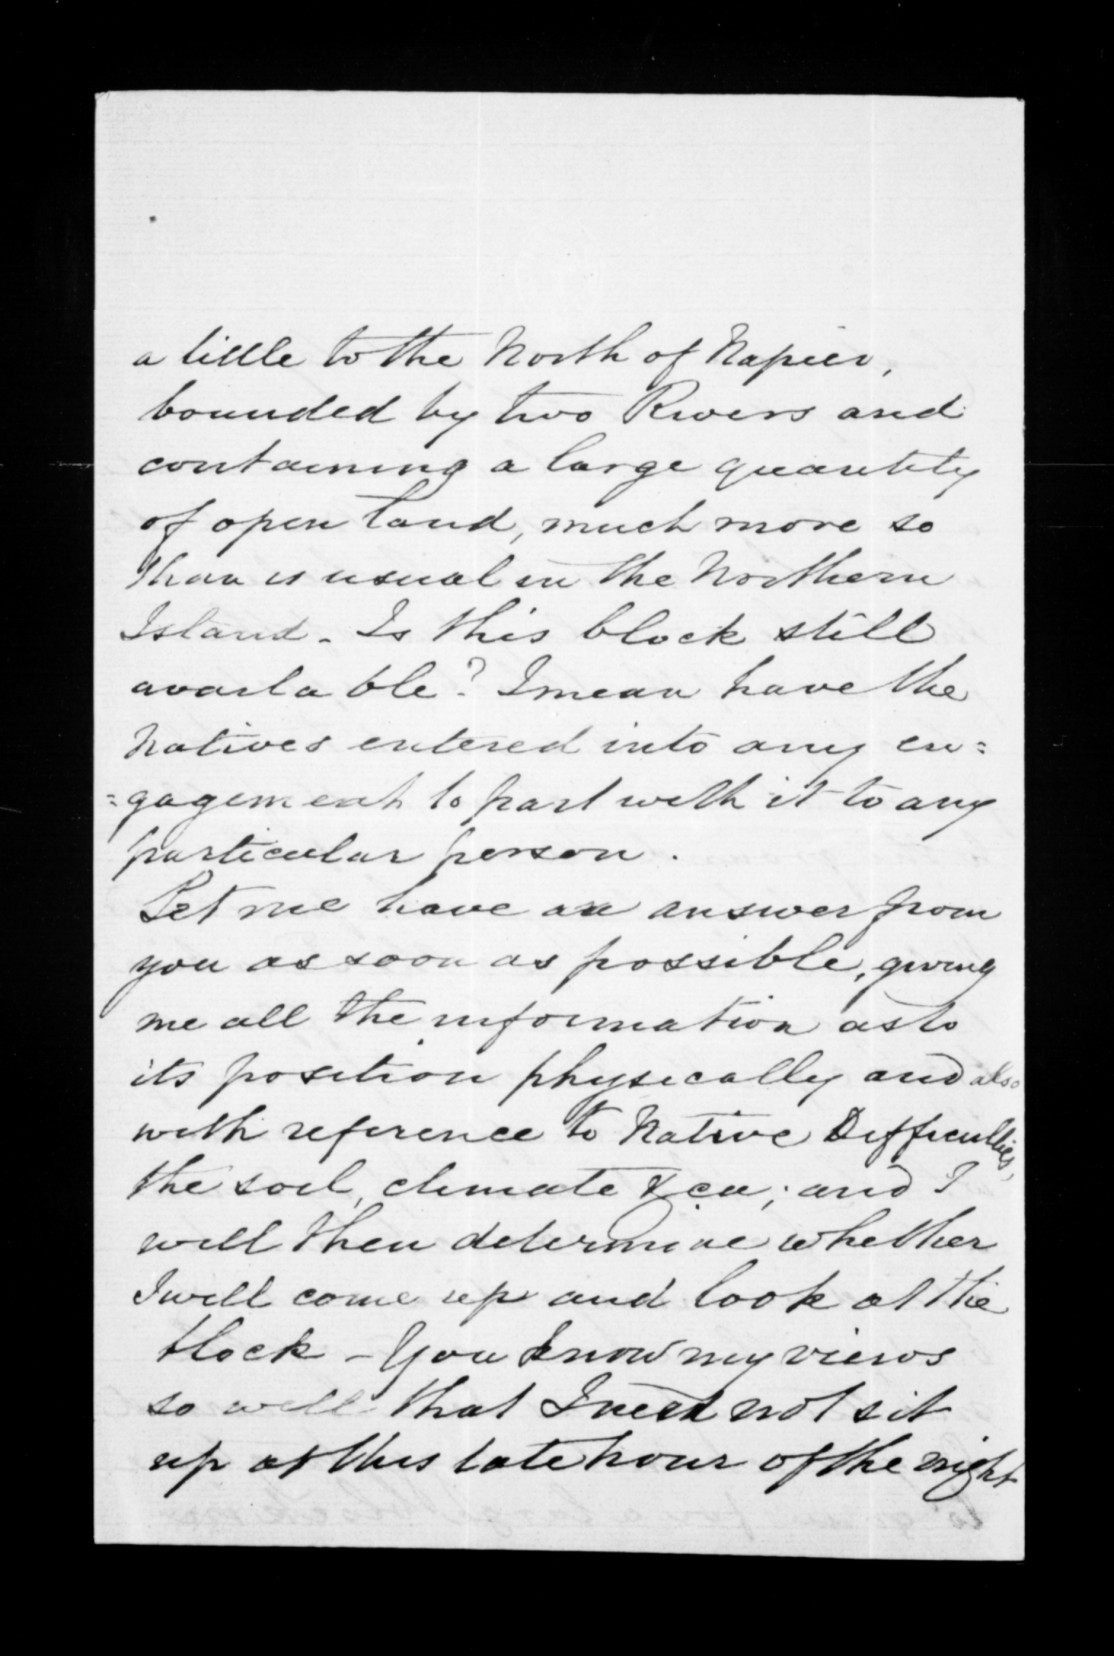 a little to the North of Napier,
bounded by two Rivers and
containing a large quantity
of open land, much more so
than is usual in the Northern
Island. Is this block still
available? I mean have the
Natives entered into any en=
=gagement to part with it to any
particular person.
Let me have an answer from
you as soon as possible, giving
me all the information as to
its position physically and also
with reference to Native Difficulties,
the soil, climate &ca; and I
will then determine whether
I will come up and look at the
block - You know my views
so well that I need not sit
up at this late hour of the night